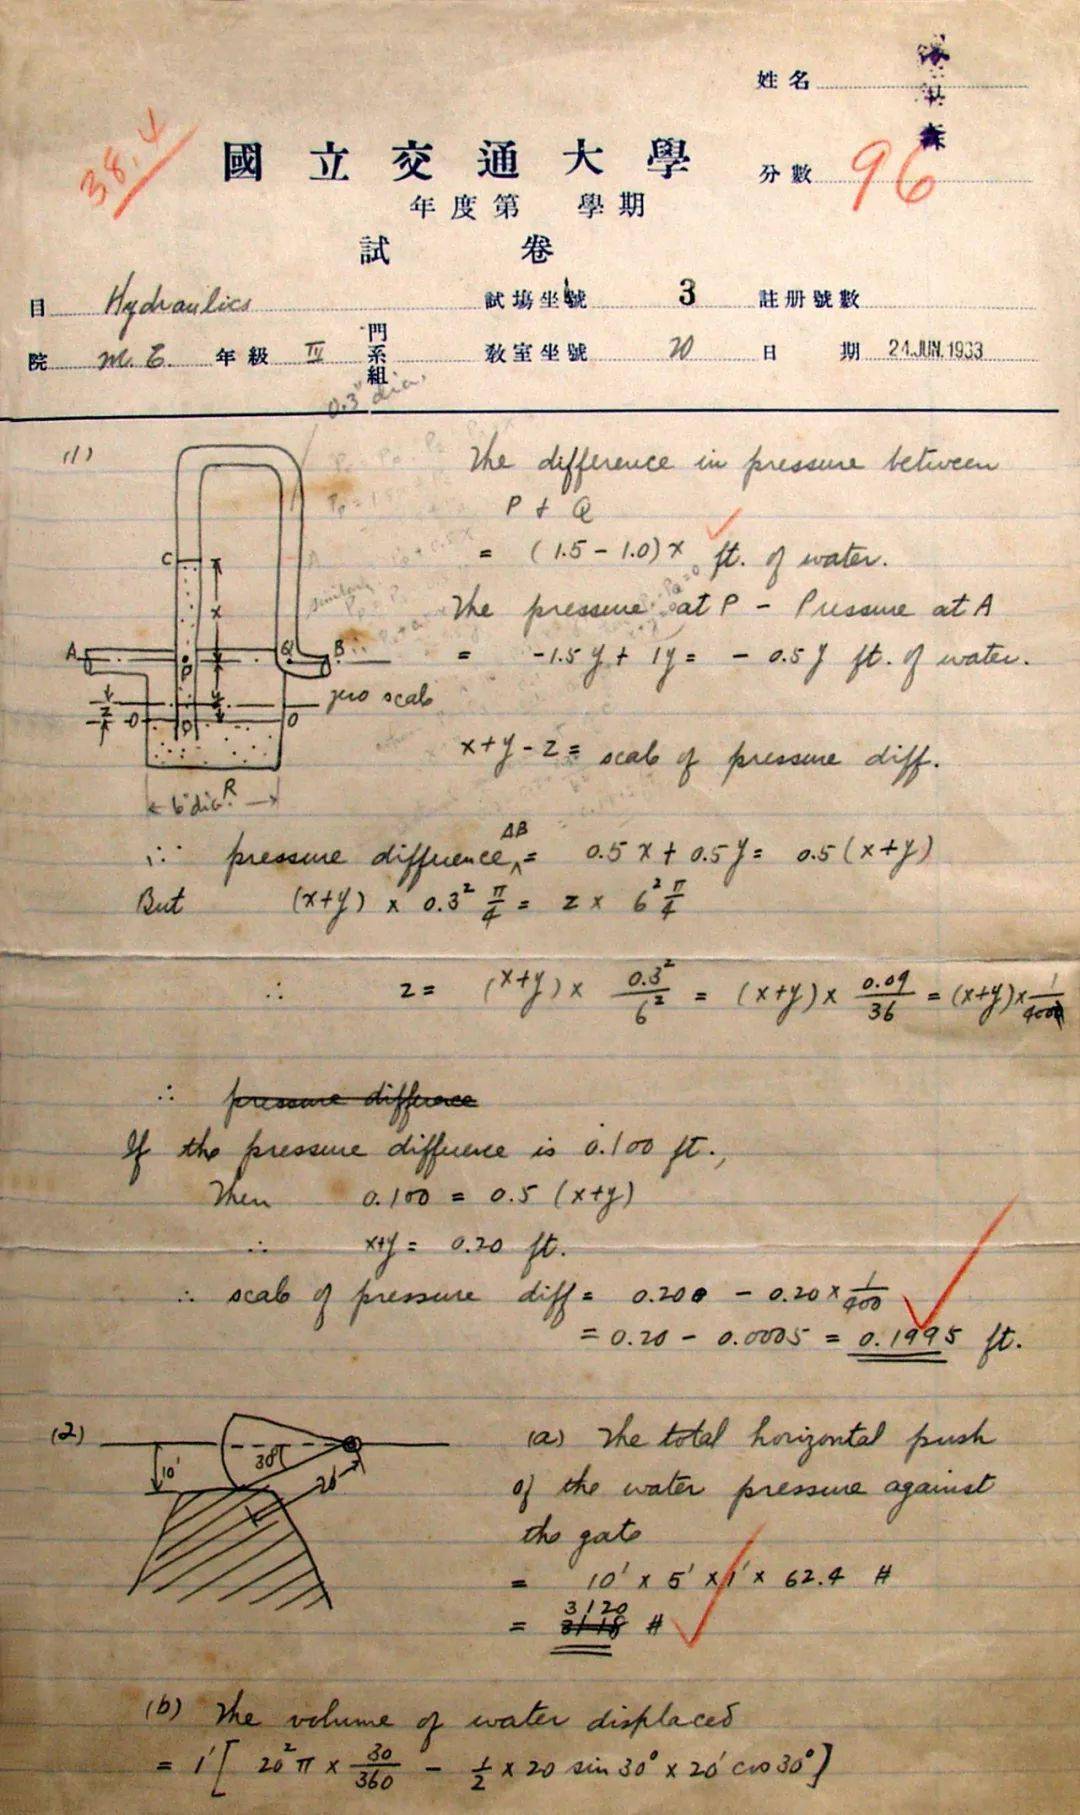 姓名
38.4
國立交通大學
分數 96
年度第 學期
試 卷
目 Hydraulics 試塲坐號 3 註册號數
院 M. E. 年級 IV 門系組 教室坐號 20 日 期 24. JUN. 1933
0.3" dia.
(1) The difference in pressure between
P + Q
= (1.5 - 1.0) x ft. of water.
The pressure at P - Pressure at A
= -1.5 y + 1y = - 0.5 y ft. of water.
x+y-z = scale of pressure diff.
C
x
A
P
Q
B
y
z
O
O
zero scale
R
6" dia.
∴ pressure difference AB = 0.5 x + 0.5 y = 0.5 (x+y)
But (x+y) × 0.3² π/4 = z × 6² π/4
∴ z = (x+y) × 0.3²/6² = (x+y) × 0.09/36 = (x+y) × 1/400
∴ pressure difference
If the pressure difference is 0.100 ft.,
Then 0.100 = 0.5 (x+y)
∴ x+y = 0.20 ft.
∴ scale of pressure diff = 0.200 - 0.20 × 1/400
= 0.20 - 0.0005 = 0.1995 ft.
(2)
10'
30°
20'
(a) The total horizontal push
of the water pressure against
the gate
= 10' × 5' × 1' × 62.4 #
= 3118 3120 #
(b) The volume of water displaced
= 1' [ 20² π × 30/360 - 1/2 × 20 sin 30° × 20' cos 30° ]